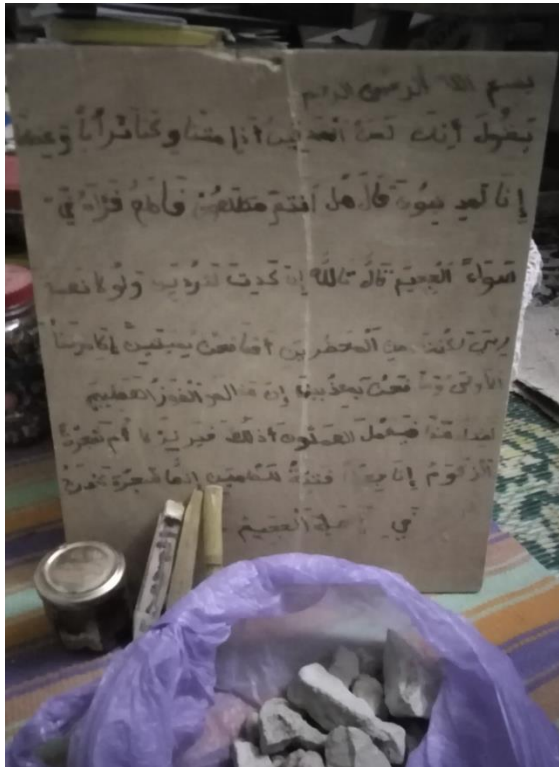 بسم الله الرحمن الرحيم
يقول أإنك لمن المصدقين أإذا متنا وكنا ترابا وعظما
إنا لمدينون قال هل أنتم مطلعون فاطلع فرءاه في
سواء الجحيم قال تالله إن كدت لتردين ولولا نعمة
ربي لكنت من المحضرين أفما نحن بميتين إلا موتتنا
الأولى وما نحن بمعذبين إن هذا لهو الفوز العظيم
لمثل هذا فليعمل العملون أذلك خير نزلا أم شجرة
الزقوم إنا جعلنها فتنة للظلمين إنها شجرة تخرج
في أصل الجحيم